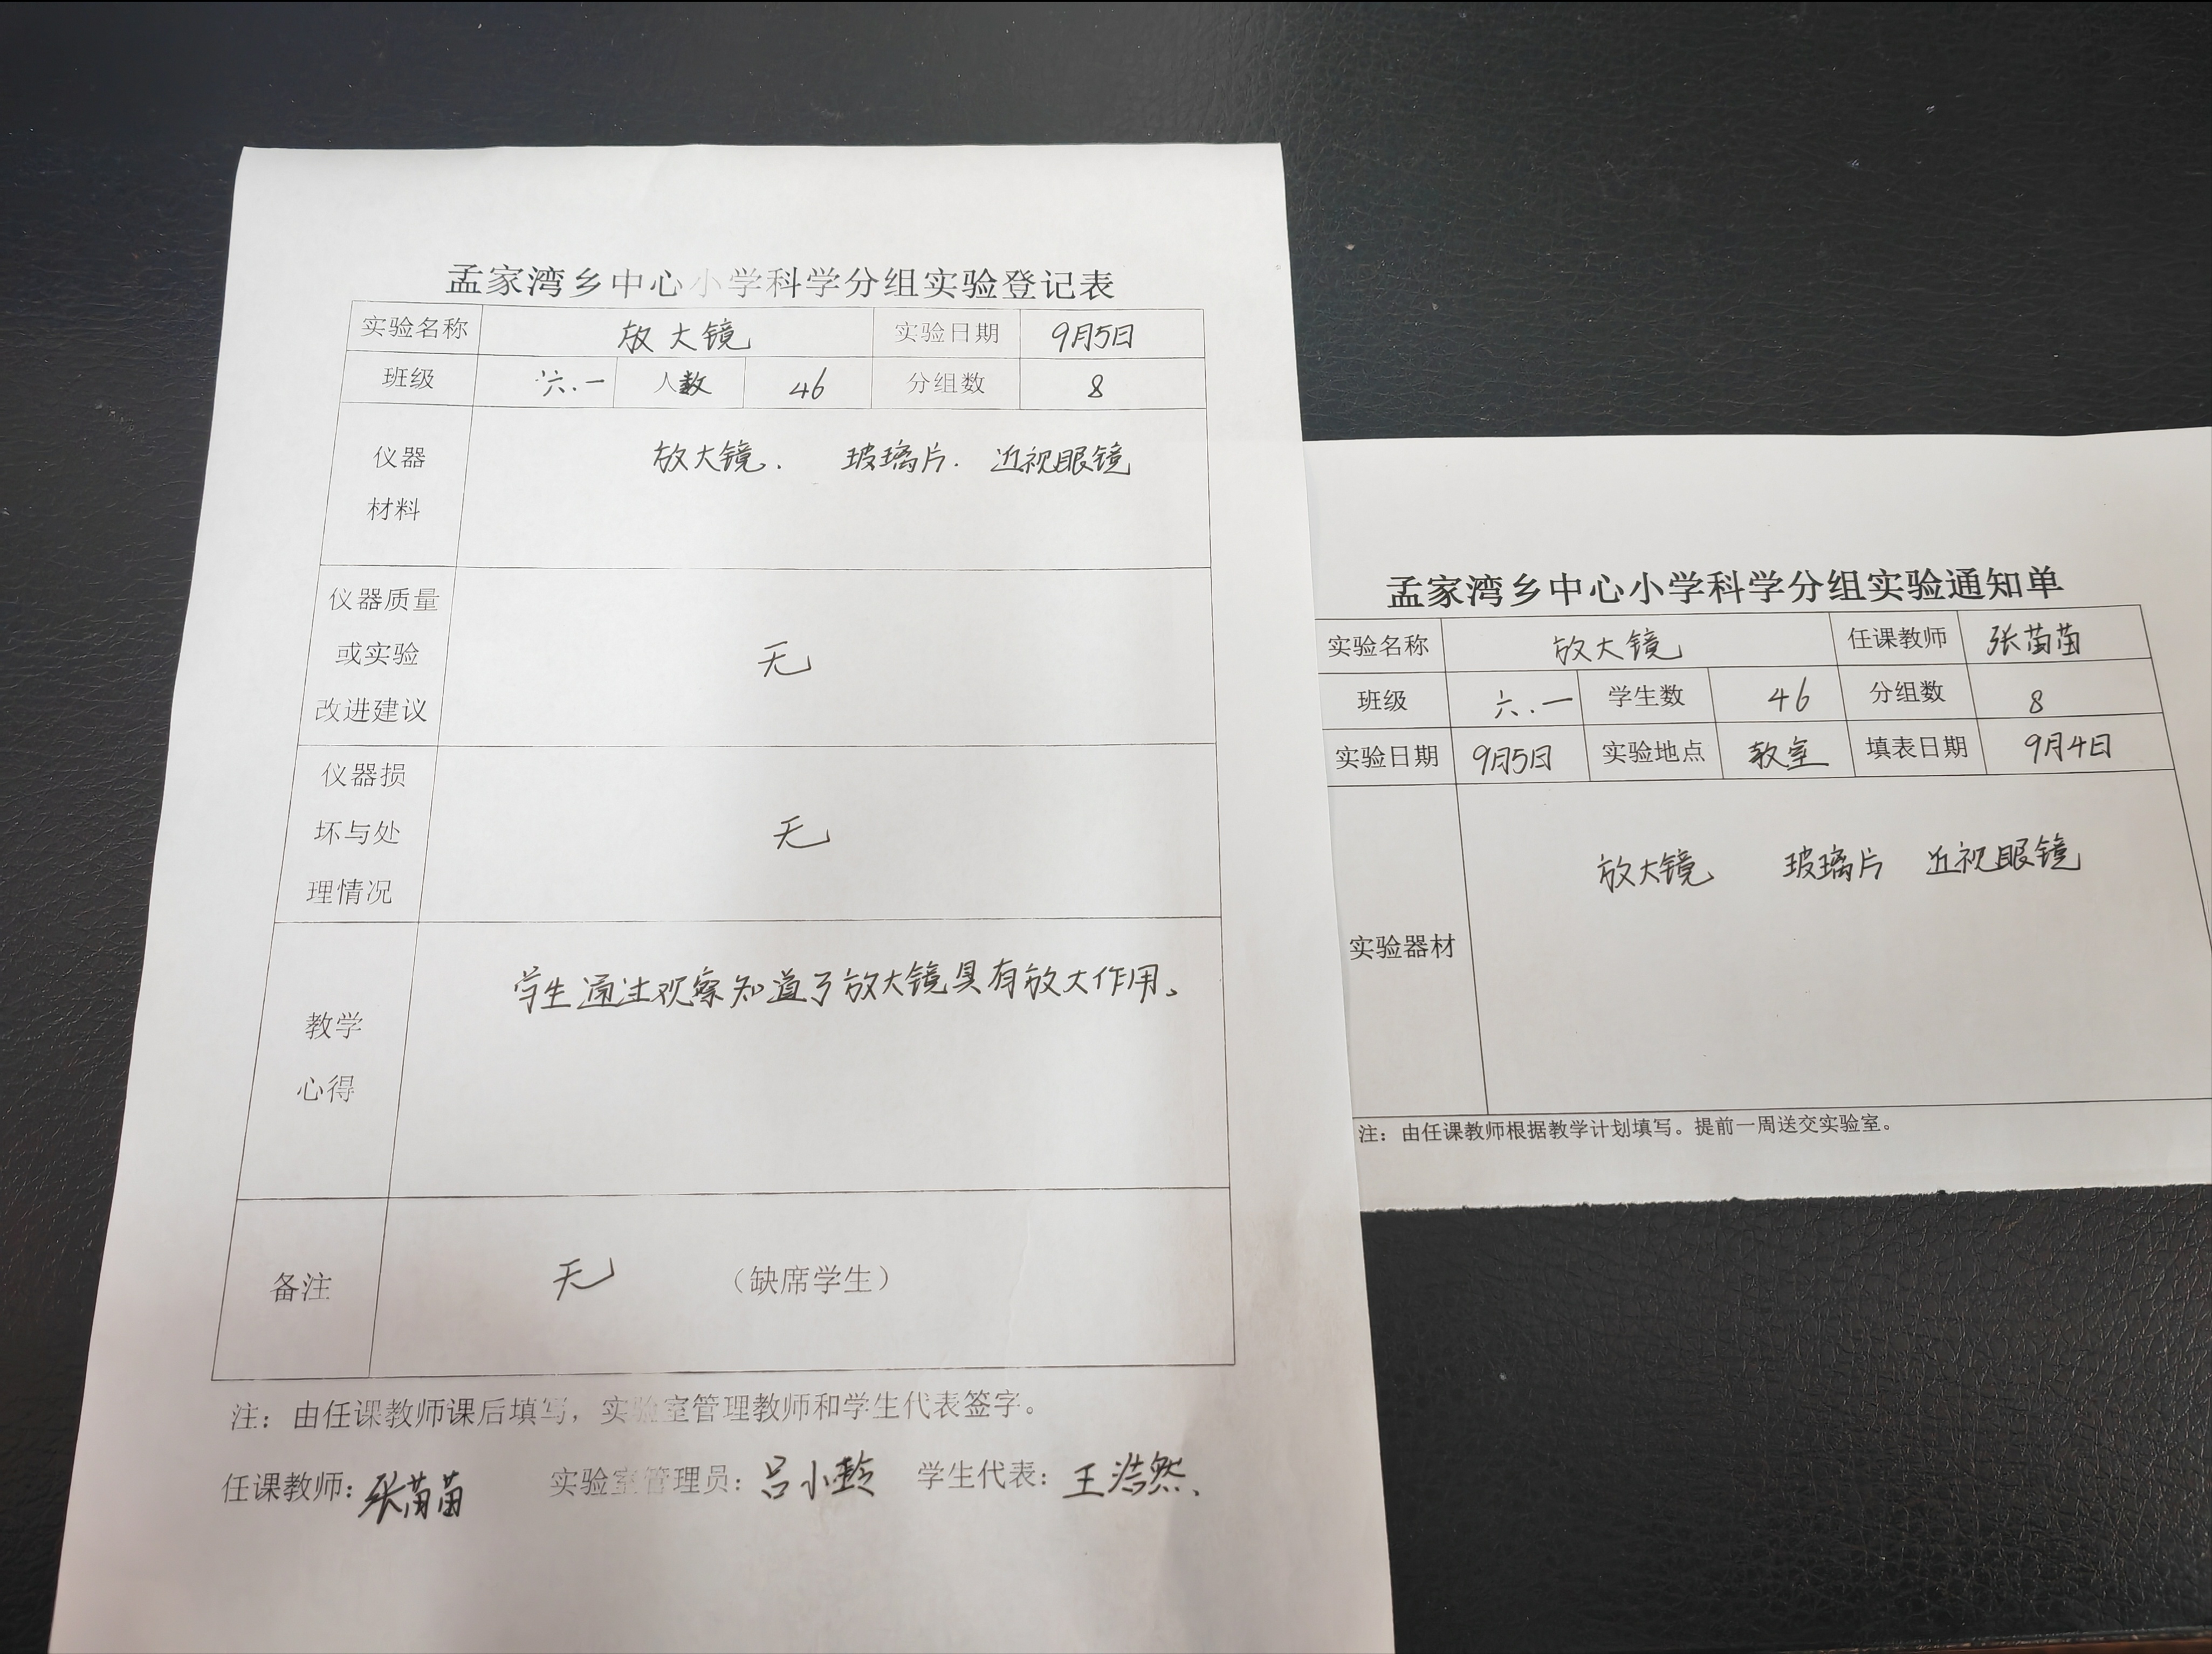 孟家湾乡中心小学科学分组实验登记表
实验名称 放大镜 实验日期 9月5日
班级 六.一 人数 46 分组数 8
仪器
材料
放大镜. 玻璃片. 近视眼镜
仪器质量
或实验
改进建议
无
仪器损
坏与处
理情况
无
教学
心得
学生通过观察知道了放大镜具有放大作用。
备注 无 （缺席学生）
注：由任课教师课后填写，实验室管理教师和学生代表签字。
任课教师：张苗苗 实验室管理员：吕小玲 学生代表：王浩然、
孟家湾乡中心小学科学分组实验通知单
实验名称 放大镜 任课教师 张苗苗
班级 六.一 学生数 46 分组数 8
实验日期 9月5日 实验地点 教室 填表日期 9月4日
实验器材
放大镜 玻璃片 近视眼镜
注：由任课教师根据教学计划填写。提前一周送交实验室。